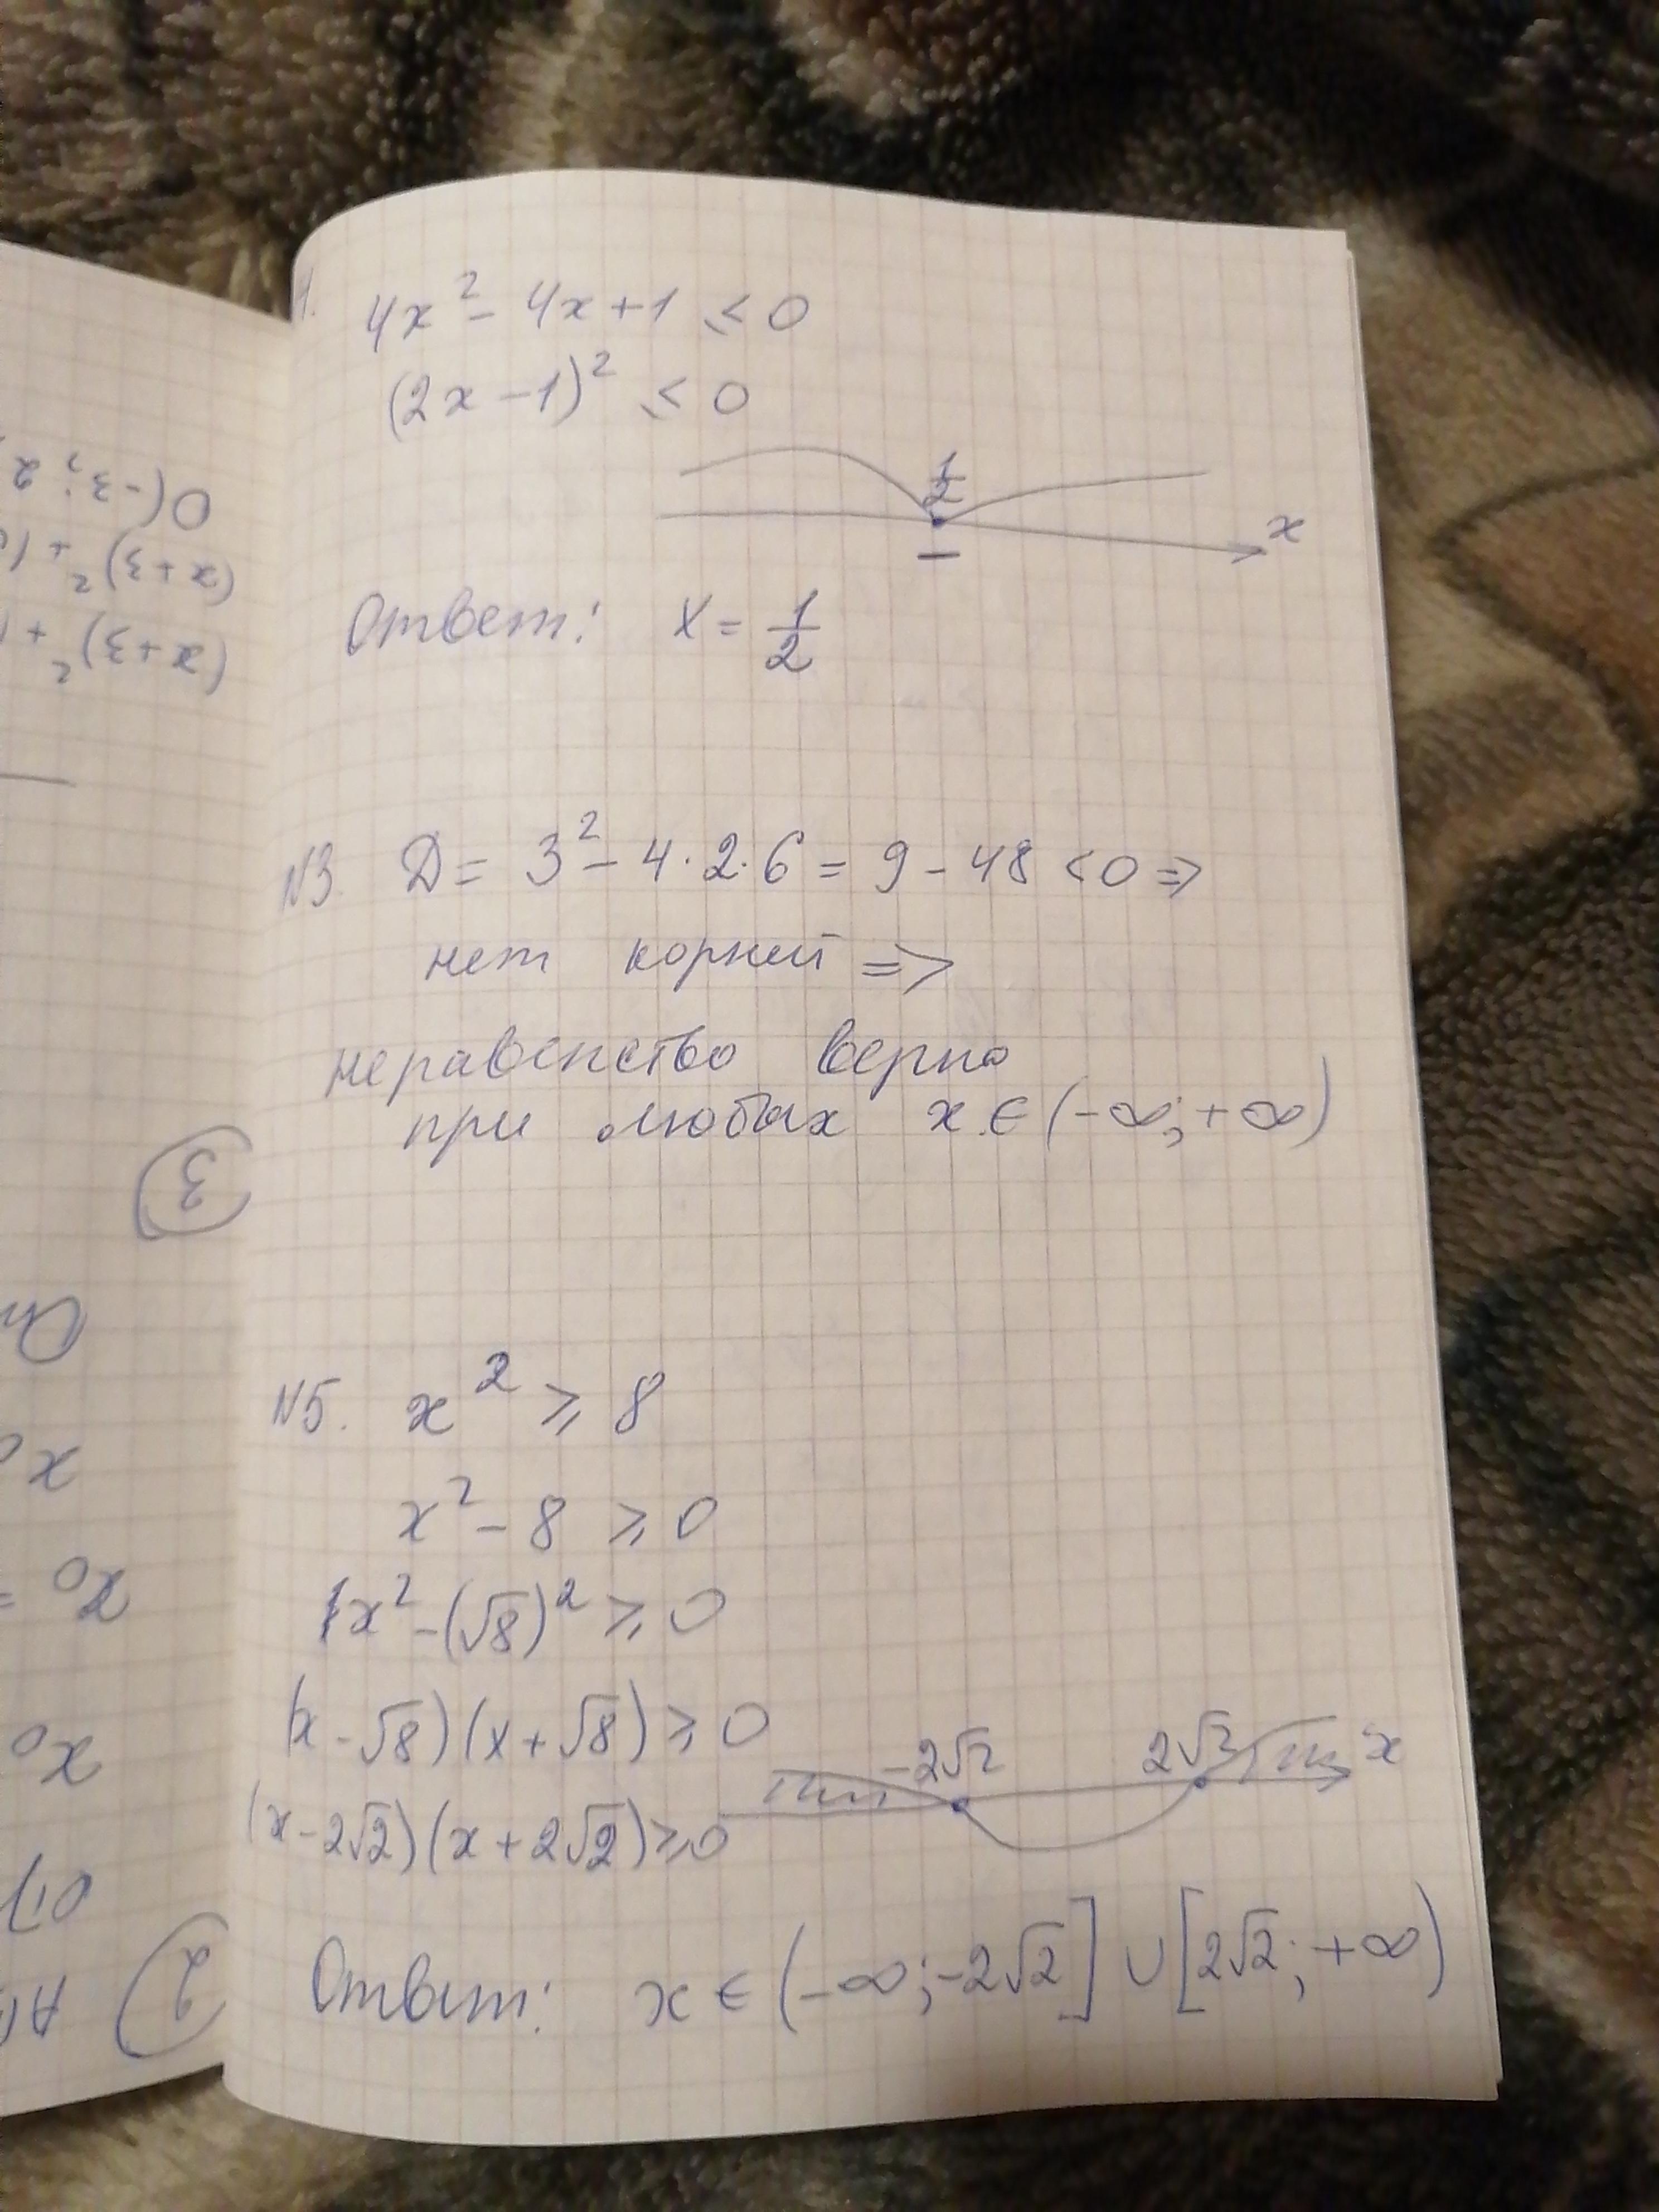 1. 4x² - 4x + 1 ≤ 0
(2x - 1)² ≤ 0
1/2
x
Ответ: x = 1/2
N3. D = 3² - 4·2·6 = 9 - 48 < 0 =>
нет корней =>
неравенство верно
при любых x ∈ (-∞; +∞)
N5. x² ≥ 8
x² - 8 ≥ 0
x² - (√8)² ≥ 0
(x - √8)(x + √8) ≥ 0
-2√2 2√2 x
(x - 2√2)(x + 2√2) ≥ 0
Ответ: x ∈ (-∞; -2√2] ∪ [2√2; +∞)
O(-3; 2
(x+3)² + (
(x+3)² +
3
x₀ =
x₀
2